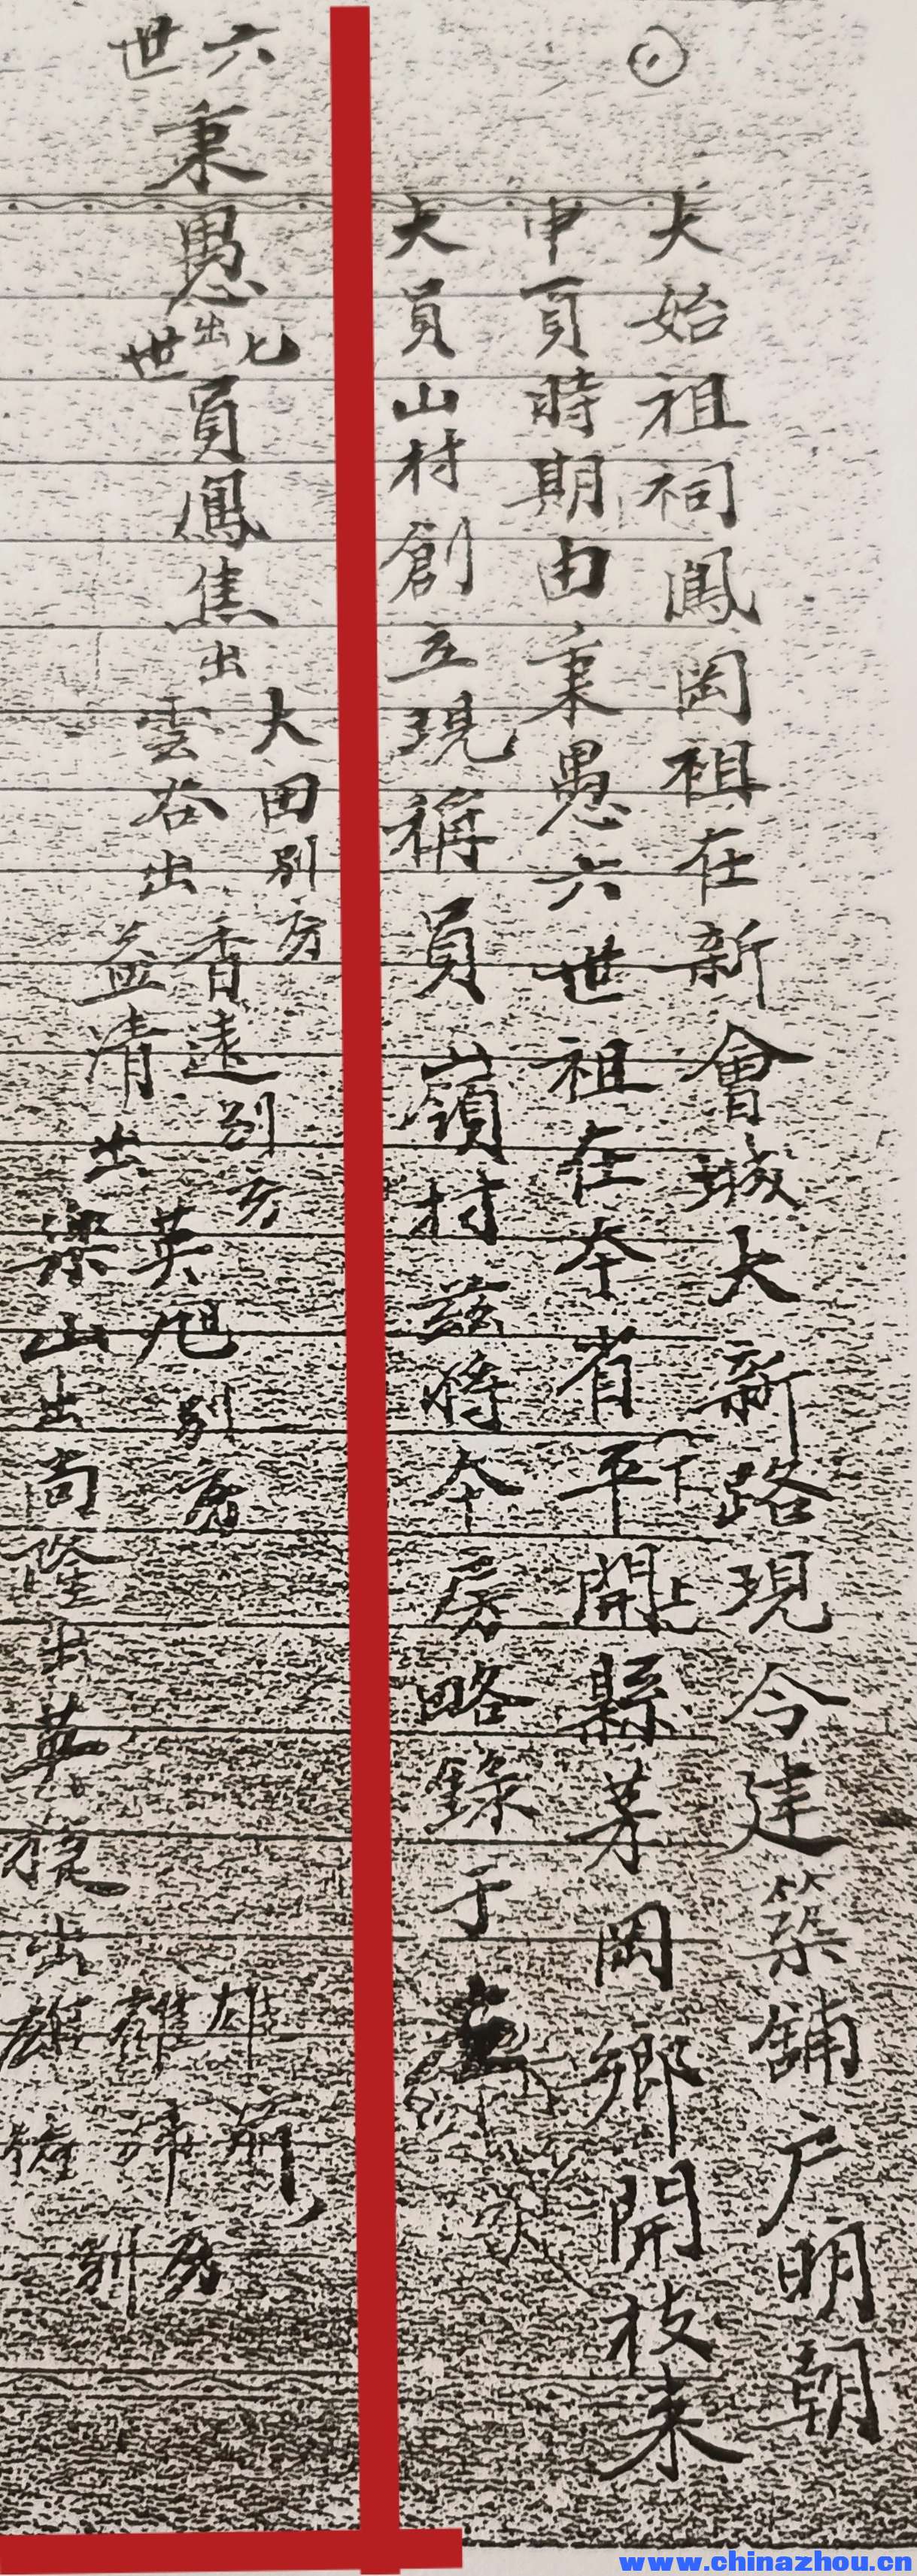 大始祖祠鳳岡祖在新會城大新路現今建築舖户明朝
中頁時期由秉愚六世祖在本省平開縣茅岡鄉開枝来
下上
大員山村創立現稱員嶺村茲將本房略錄于
六世秉愚出七世員鳳焦出
大田别房
雲谷出
香遠别房
益清出
英旭别房
樂山出尚隆出英積出
雄
别房
www.chinazhou.cn